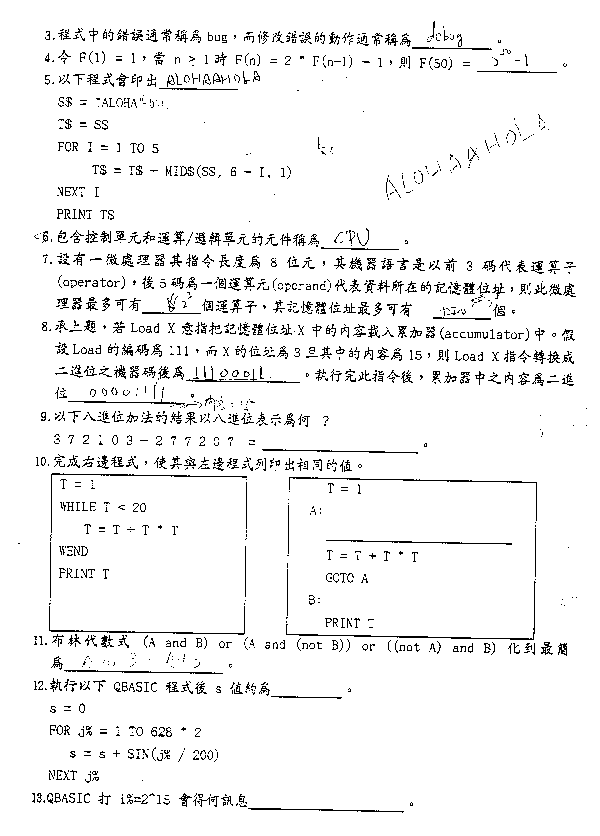 3.程式中的錯誤通常稱為bug，而修改錯誤的動作通常稱為 debug 。
4.令 F(1) = 1，當 n ≥ 1 時 F(n) = 2 * F(n-1) - 1，則 F(50) = -1 。
5.以下程式會印出 ALOHAAHOLA
S$ = "ALOHA"
T$ = S$
FOR I = 1 TO 5
T$ = T$ + MID$(S$, 6 - I, 1)
NEXT I
PRINT T$
ALOHAAHOLA
6.包含控制單元和運算/邏輯單元的元件稱為 CPU 。
7.設有一微處理器其指令長度為 8 位元，其機器語言是以前 3 碼代表運算子
(operator)，後5碼為一個運算元(operand)代表資料所在的記憶體位址，則此微處
理器最多可有 個運算子，其記憶體位址最多可有 個。
8.承上題，若Load X 意指把記憶體位址 X 中的內容載入累加器(accumulator)中。假
設Load的編碼為111，而X的位址為3且其中的內容為15，則 Load X 指令轉換成
二進位之機器碼後為 11100011 。執行完此指令後，累加器中之內容為二進
位 00001111 。
9.以下八進位加法的結果以八進位表示為何 ？
372103-277207 = 。
10.完成右邊程式，使其與左邊程式列印出相同的值。
T = 1
WHILE T < 20
T = T + T * T
WEND
PRINT T
T = 1
A:
T = T + T * T
GOTO A
B:
PRINT T
11.布林代數式 (A and B) or (A and (not B)) or ((not A) and B) 化到最簡
為 。
12.執行以下 QBASIC 程式後 s 值約為 。
s = 0
FOR j% = 1 TO 628 * 2
s = s + SIN(j% / 200)
NEXT j%
13.QBASIC 打 i%=2^15 會得何訊息 。